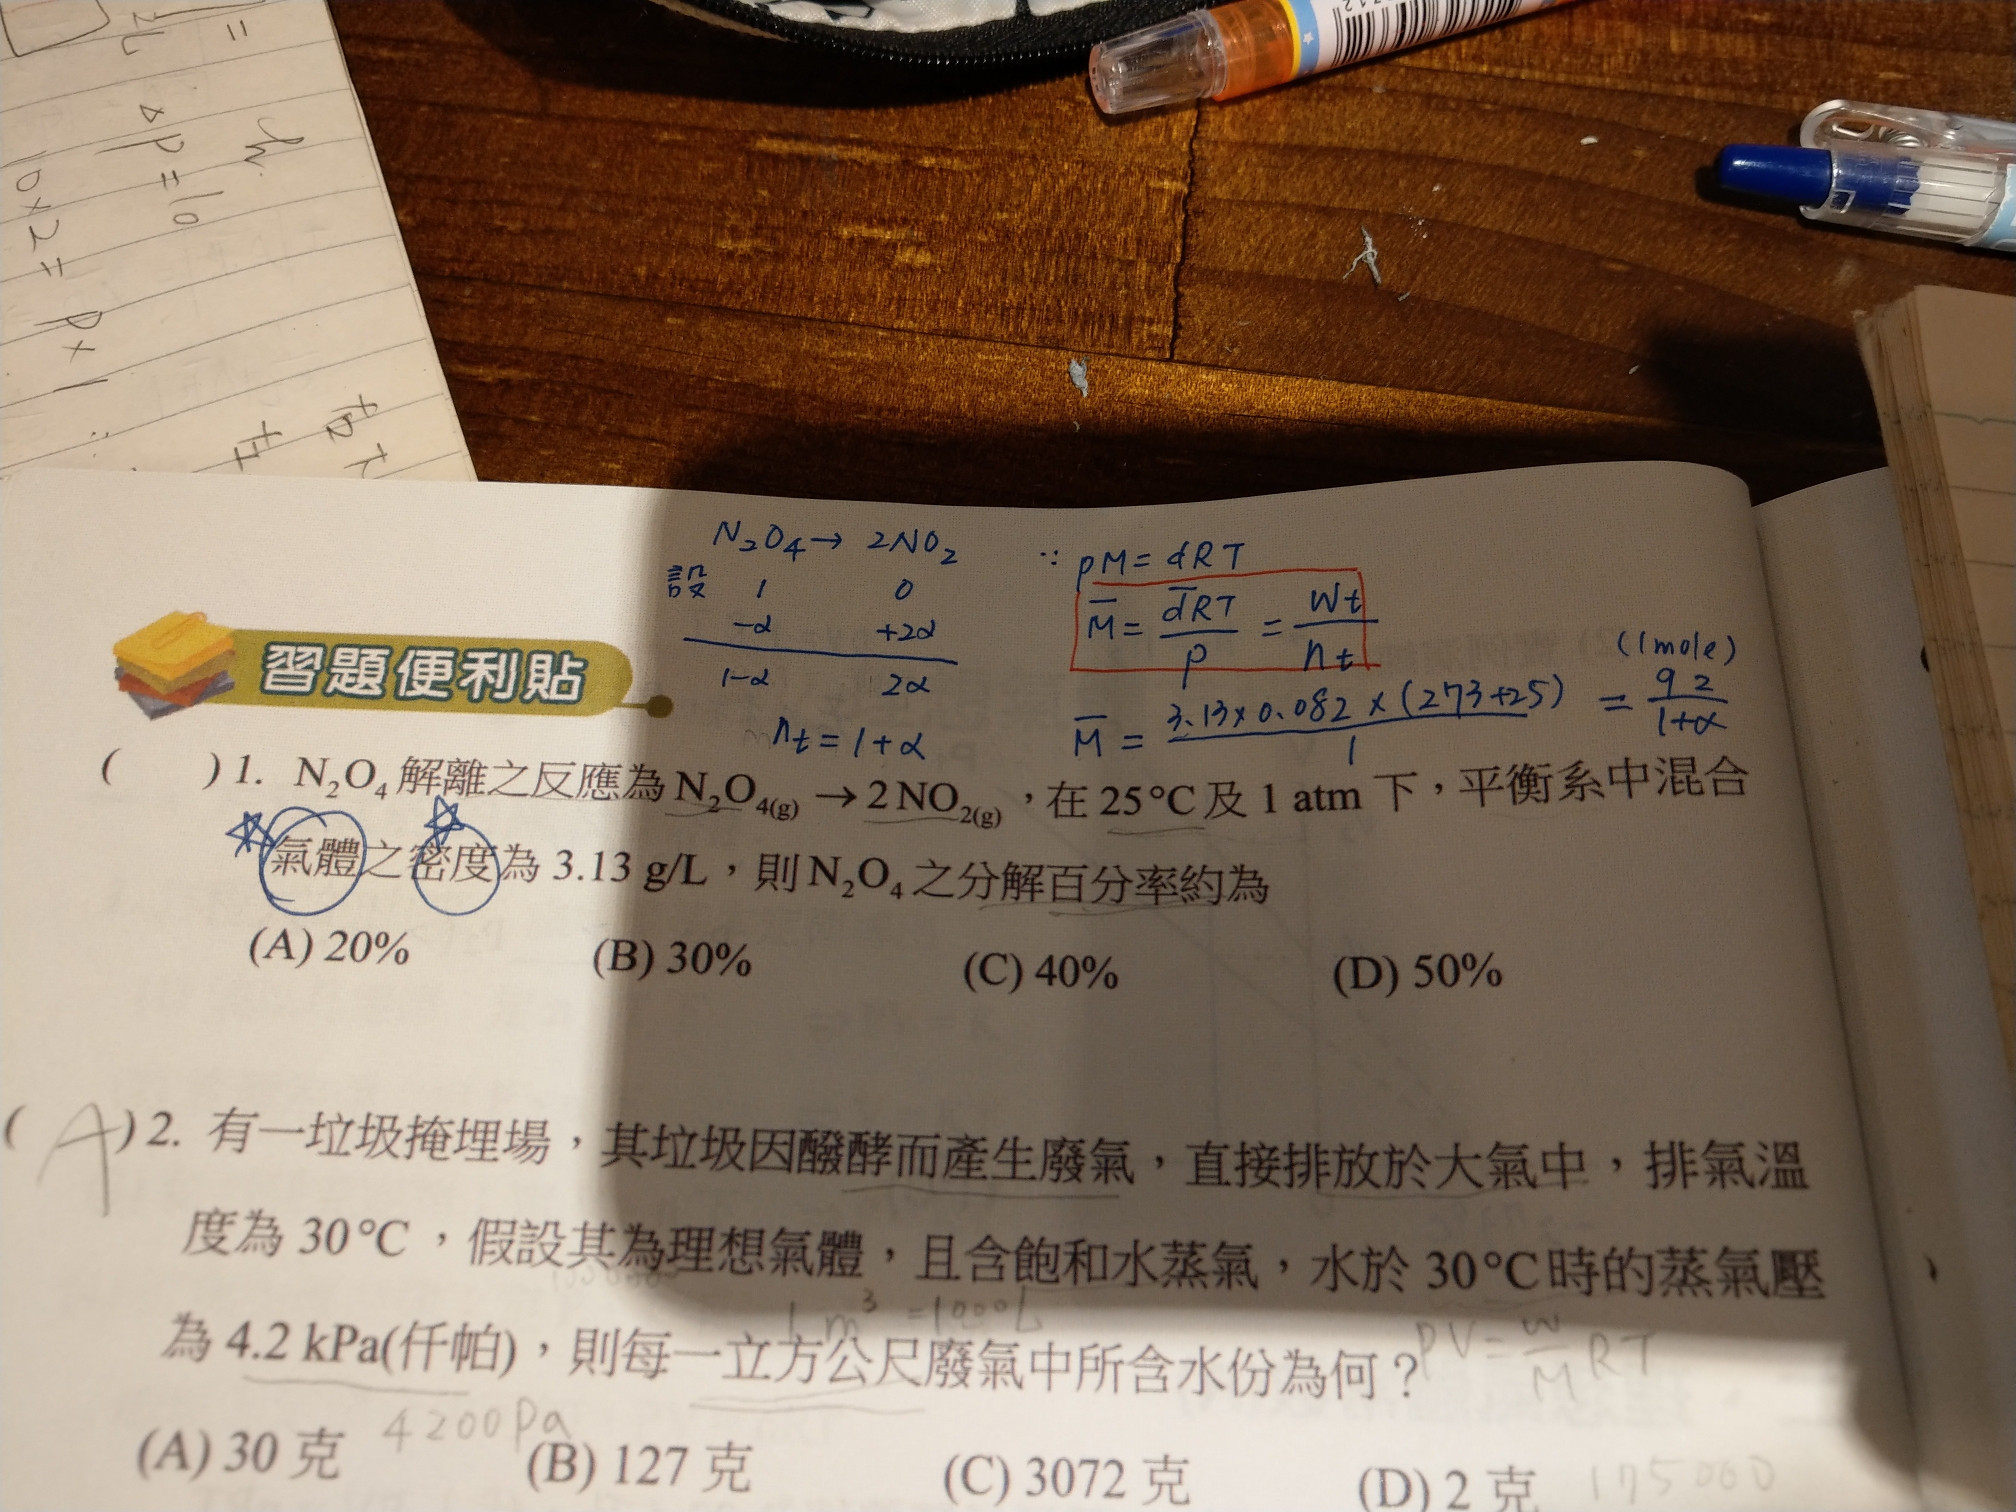 ΔP = 10
10×2 = P×1
N₂O₄ → 2NO₂
設 1 0
-α +2α
1-α 2α
nt = 1+α
∵ PM = dRT
M̄ = d̄RT/P = Wt/nt
M̄ = 3.13×0.082×(273+25)/1 = 92/1+α
(1mole)
習題便利貼
( )1. N₂O₄解離之反應為N₂O₄(g) → 2NO₂(g),在25°C及1 atm下,平衡系中混合
氣體之密度為3.13 g/L,則N₂O₄之分解百分率約為
(A) 20% (B) 30% (C) 40% (D) 50%
(A)2. 有一垃圾掩埋場,其垃圾因醱酵而產生廢氣,直接排放於大氣中,排氣溫
度為30°C,假設其為理想氣體,且含飽和水蒸氣,水於30°C時的蒸氣壓
1m³ = 1000L
為4.2 kPa(仟帕),則每一立方公尺廢氣中所含水份為何?
PV = W/M RT
4200Pa
(A) 30克 (B) 127克 (C) 3072克 (D) 2克